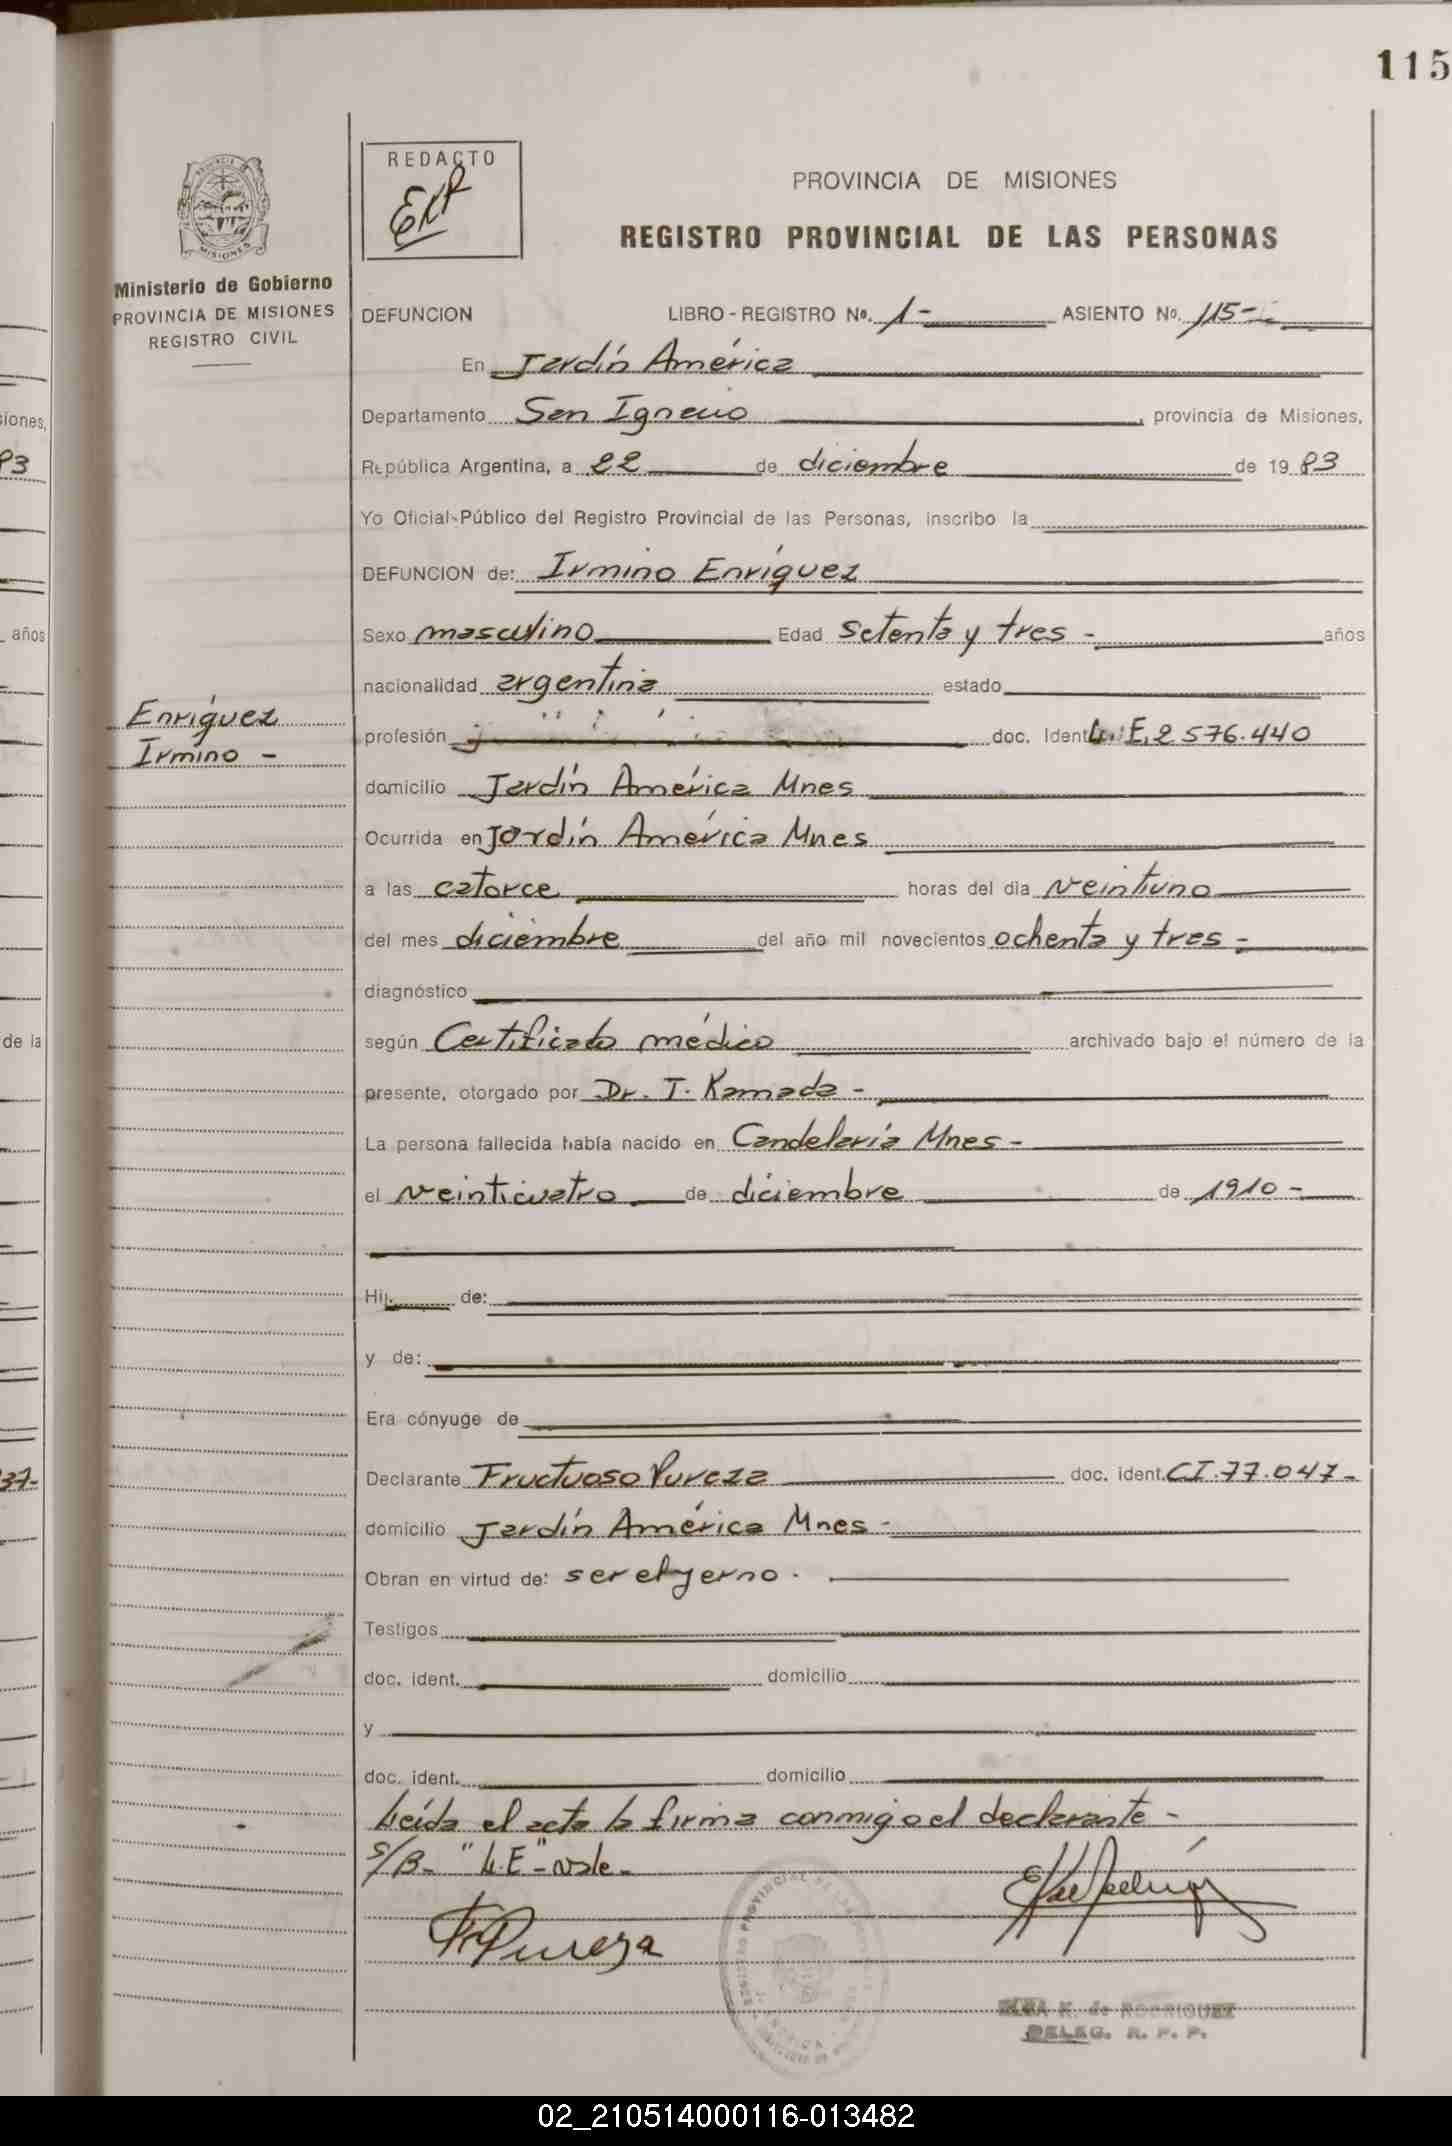 115
REDACTO
EKR
PROVINCIA DE MISIONES
REGISTRO PROVINCIAL DE LAS PERSONAS
Ministerio de Gobierno
PROVINCIA DE MISIONES
REGISTRO CIVIL
DEFUNCION LIBRO-REGISTRO No. 1- ASIENTO No. 115-
En Jardín América
Departamento San Ignacio, provincia de Misiones,
República Argentina, a 22 de diciembre de 19 83
Yo Oficial Público del Registro Provincial de las Personas, inscribo la
DEFUNCION de: Irmino Enríquez
Sexo masculino Edad Setenta y tres - años
nacionalidad argentina estado
Enríquez
Irmino -
profesión doc. Ident L.E. 2 576.440
domicilio Jardín América Mnes
Ocurrida en Jardín América Mnes
a las catorce horas del dia veintiuno
del mes diciembre del año mil novecientos ochenta y tres -
diagnóstico
según Certificado médico archivado bajo el número de la
presente, otorgado por Dr. T. Kamada -
La persona fallecida había nacido en Candelaria Mnes -
el veinticuatro de diciembre de 1910 -
Hij de:
y de:
Era cónyuge de
Declarante Fructuoso Pureza doc. ident. CI.77.047-
domicilio Jardín América Mnes -
Obran en virtud de: ser el yerno.
Testigos
doc. ident. domicilio
y
doc. ident. domicilio
Leída el acta la firma conmigo el declarante -
S/B- "L.E"- vale-
Pureza
K. de RODRIGUEZ
DELEG. R. P. P.
iones,
83
años
de la
37-
02_210514000116-013482